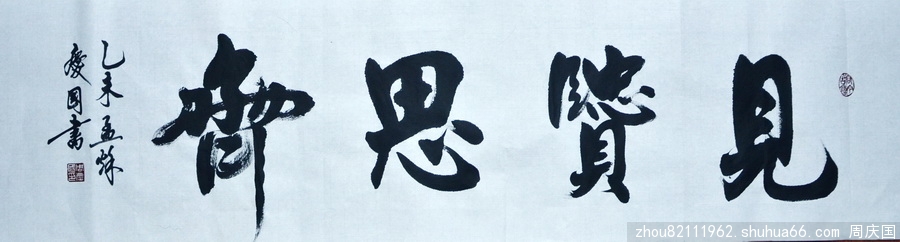 見賢思齊
乙未孟秌
慶国書
zhou82111962. shuhua66. com 周庆国